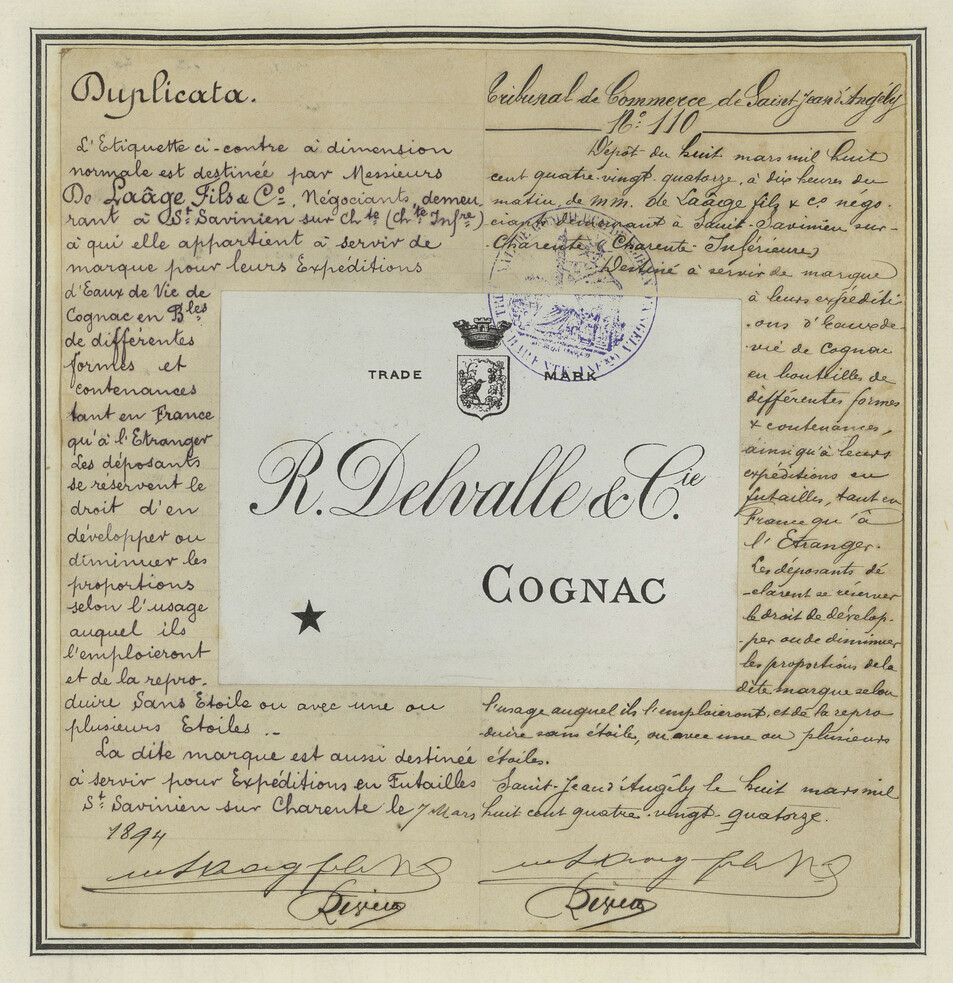 Duplicata.
L'Etiquette ci-contre à dimension
normale est destinée par Messieurs
De Laâge Fils & Cº, Négociants, demeu
rant à St Savinien sur Chte (Chte Infre)
à qui elle appartient à servir de
marque pour leurs Expéditions
d'Eaux de Vie de
Cognac en Bles
de différentes
formes et
contenances
tant en France
qu'à l'Etranger
Les déposants
se réservent le
droit d'en
développer ou
diminuer les
proportions
selon l'usage
auquel ils
l'emploieront
et de la repro-
duire Sans Etoile ou avec une ou
plusieurs Etoiles ..
La dite marque est aussi destinée
à servir pour Expéditions en Futailles
St Savinien sur Charente le 7 Mars
1894
Tribunal de Commerce de Saint Jean d'Angély
Nº 110
Dépôt du huit mars mil huit
cent quatre-vingt-quatorze, à dix heures du
matin, de mm. de Laâge fils & cº négo-
ciants demeurant à Saint-Savinien sur-
-Charente (Charente-Inférieure)
Destiné à servir de marque
à leurs expéditi-
-ons d'Eaux de-
-vie de Cognac
en bouteilles de
différentes formes
& contenances,
ainsi qu'à leurs
expéditions en
futailles, tant en
France qu'à
l'Etranger.
Les déposants dé
-clarent se réserver
le droit de dévelop-
-per ou de diminuer
les proportions de la
dite marque selon
l'usage auquel ils l'emploieront, et de la repro
-duire sans étoile, ou avec une ou plusieurs
étoiles.
Saint-Jean d'Angély le huit mars mil
huit cent quatre-vingt-quatorze.
TRADE MARK
R. Delvalle & Cie.
COGNAC